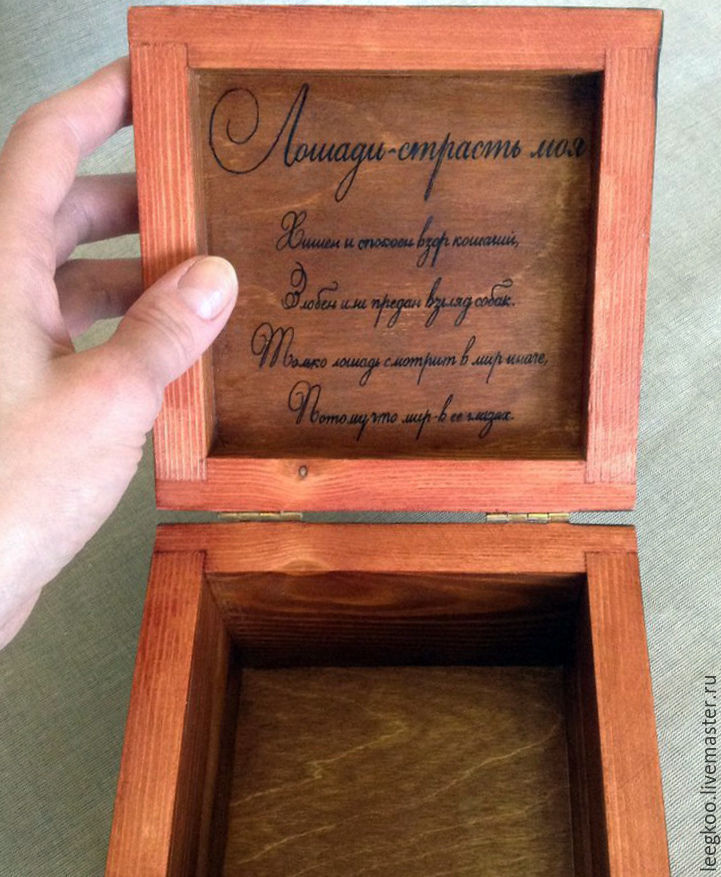 Лошади-страсть моя
Хищен и спокоен взор кошачий,
Злобен или предан взгляд собак.
Только лошадь смотрит в мир иначе,
Потому что мир-в ее глазах.
leegkoo.livemaster.ru